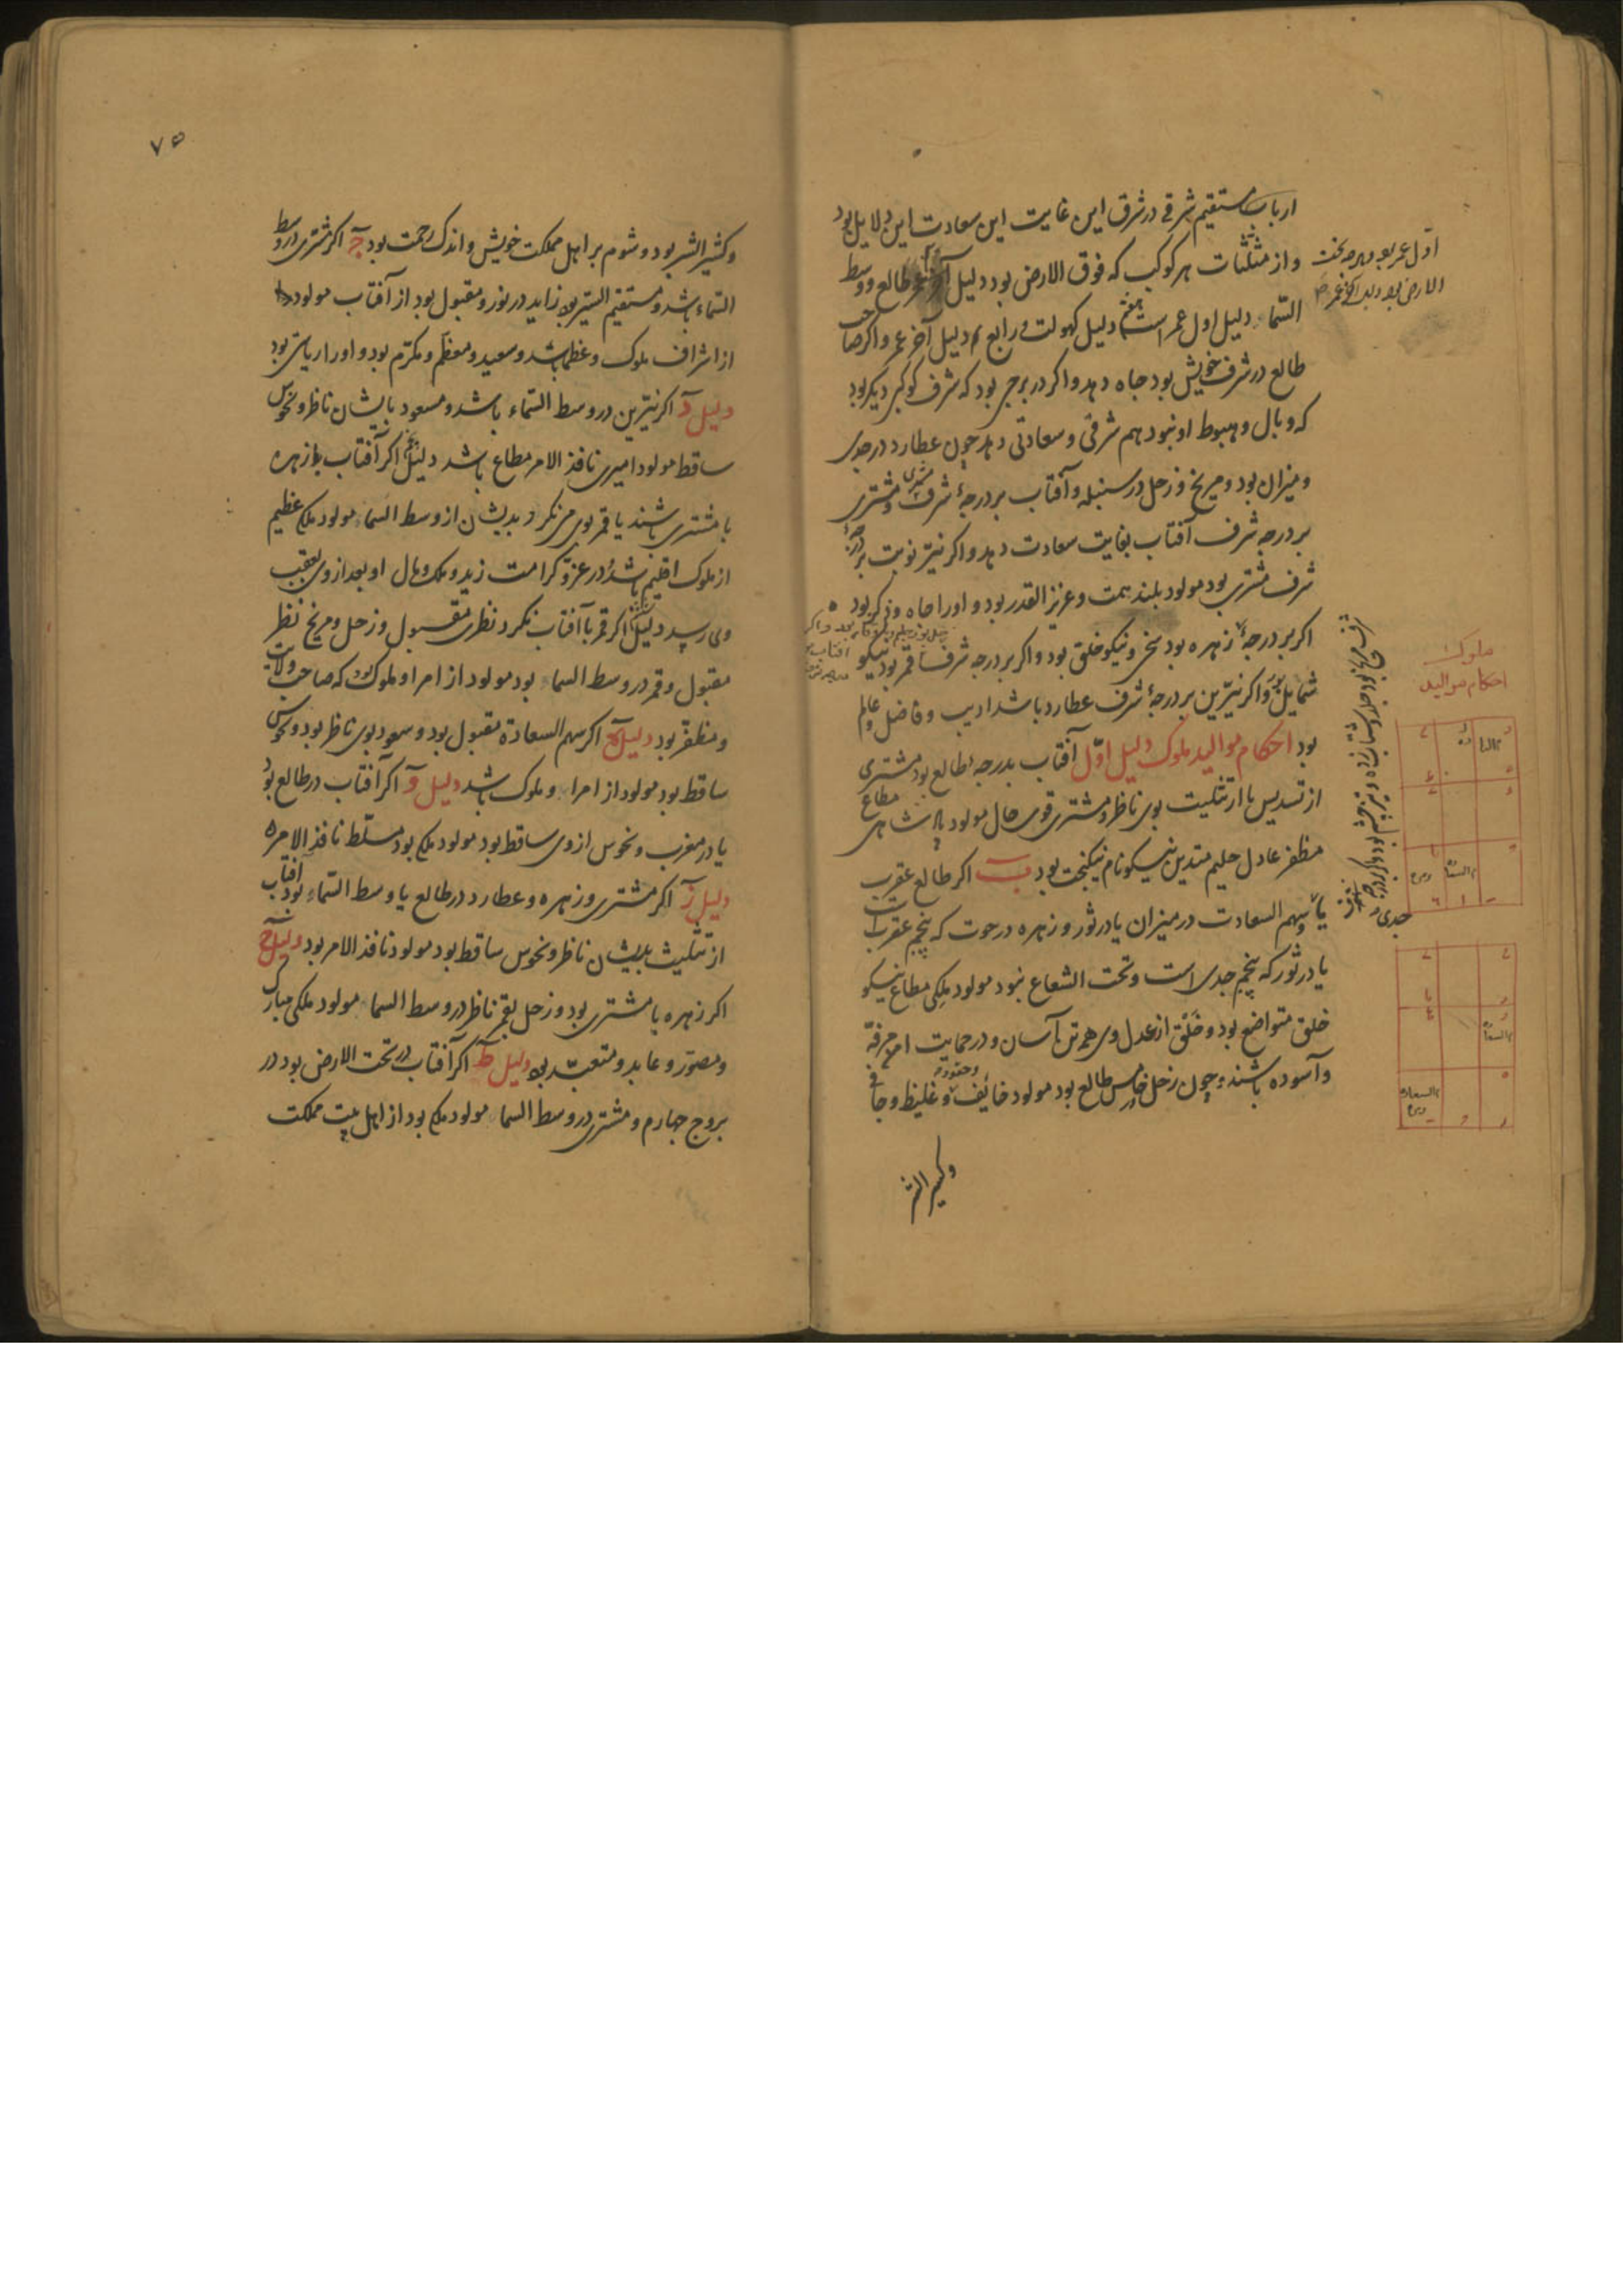 ارباب مستقیم شرقی در شرق این غایت این سعادت این دلایل بود
واز مثلثات هر کوکب که فوق الارض بود دلیل طالع ووسط
السماء دلیل اول عمر است دلیل کهولت و رابع دلیل آخر عمر واکر صاحب
طالع در شرف خویش بود جاه دهد واکر در برجی بود که شرف کوکبی دیکر بود
که وبال وهبوط او نبود هم شرفی وسعادتی دهد چون عطارد در جدی
ومیزان بود ومریخ وزحل در سنبله وآفتاب بر درجهٔ شرف مشتری ومشتری
بر درجه شرف آفتاب بغایت سعادت دهد واکر نیّر نوبت بر درجهٔ
شرف مشتری بود مولود بلند همت وعزیز القدر بود واورا جاه وذکر بود
اکر بر درجهٔ زهره بود سخی ونیکو خلق بود واکر بر درجه شرف قمر بود نیکو
شمایل بود واکر نیّرین بر درجهٔ شرف عطارد باشد ادیب وفاضل وعالم
بود احکام موالید ملوک دلیل اوّل آفتاب بدرجهٔ طالع بود مشتری
از تسدیس یا از تثلیث بوی ناظر ومشتری قوی حال مولود پادشاهی مطاع
مظفر عادل حلیم متدین نیکو نام نیکبخت بود ب اکر طالع عقرب
یا سهم السعادت در میزان یا در ثور وزهره در حوت که پنجم عقرب است
یا در ثور که پنجم جدی است وتحت الشعاع نبود مولود ملکی مطاع نیکو
خلق متواضع بود وخلق از عدل وی همه تن آسان ودر حمایت او مرفّه
وآسوده باشند وچون زحل خامس طالع بود مولود خائف وحقود وغلیظ وجافی
وکثیر الشر
اوّل عمر بود وهرچه تحت
الارض بود دلیل آخر عمر
ملوک
احکام موالید
۷۵
وکثیر الشر بود وشوم بر اهل مملکت خویش واندک رحمت بود ج اکر مشتری در وسط
السماء باشد ومستقیم السیر بود زاید در نور ومقبول بود از آفتاب مولود
از اشراف ملوک وعظما باشد وسعید ومعظّم ومکرّم بود واورا ریاستی بود
دلیل د اکر نیّرین در وسط السماء باشد ومسعود بایشان ناظر ونحوس
ساقط مولود امیری نافذ الامر مطاع باشد دلیل اکر آفتاب با زهره
با مشتری باشند یا قمر بوی می نکرد بدیشان از وسط السماء مولود ملکی عظیم
از ملوک اقلیم باشد ودر عزّ وکرامت زید وملک ومال او بعد از وی بعقب
وی رسد دلیل اکر قمر با آفتاب نکرد نظری مقبول وزحل ومریخ نظر
مقبول وقمر در وسط السماء بود مولود از امرا وملوک بود که صاحب ولایت
ومظفر بود دلیل ه اکر سهم السعادة مقبول بود وسعود بوی ناظر بود ونحوس
ساقط بود مولود از امراء وملوک باشد دلیل و اکر آفتاب در طالع بود
یا در مغرب ونحوس از وی ساقط بود مولود ملکی بود مسلّط نافذ الامر
دلیل ز اکر مشتری وزهره وعطارد در طالع یا وسط السماء بود وآفتاب
از تثلیث بدیشان ناظر ونحوس ساقط بود مولود نافذ الامر بود دلیل ح
اکر زهره با مشتری بود وزحل بقمر ناظر در وسط السماء مولود ملکی مبارک
ومصوّر وعابد ومتعبّد بود دلیل ط اکر آفتاب در تحت الارض بود در
بروج چهارم ومشتری در وسط السماء مولود ملکی بود از اهل بیت مملکت